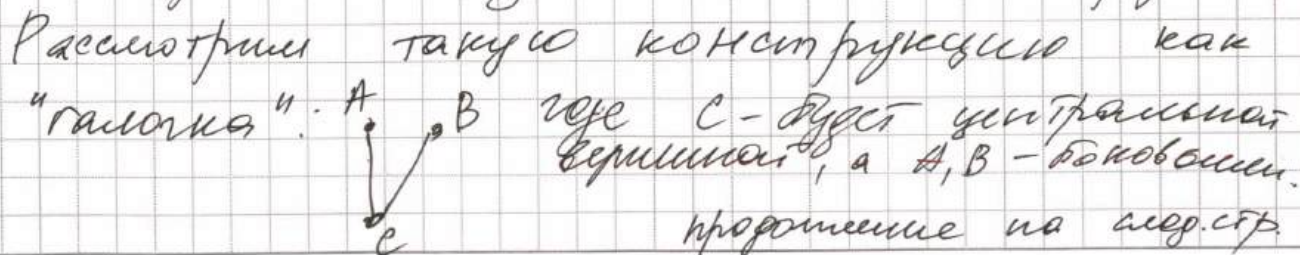 Рассмотрим такую конструкцию как
"галочка": A B где C - будет центральной
вершиной, а A, B - боковыми.
C
продолжение на след. стр.